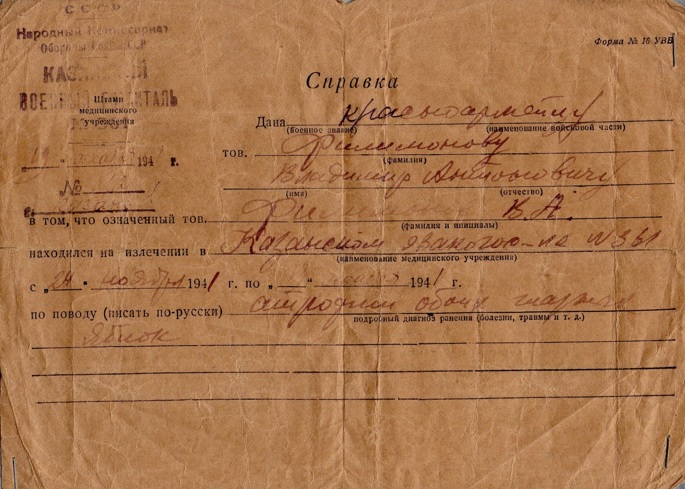 СССР
Народный Комиссариат
Обороны Союза ССР
КАЗАНСКИЙ
ВОЕННЫЙ ГОСПИТАЛЬ
Форма № 16 УВВ
Справка
Штамп
медицинского
учреждения
Дана красноармейцу
(военное звание) (наименование войсковой части)
19 1941 г.
тов. Филимонову
(фамилия)
№
Владимир Антоновичу
(имя) (отчество)
г. Казань
в том, что означенный тов. В. А.
(фамилия и инициалы)
находился на излечении в Казанском № 361
(наименование медицинского учреждения)
с „24“ ноября 1941 г. по „ “ 1941 г.
по поводу (писать по-русски) обоих глазных
подробный диагноз ранения (болезни, травмы и т. д.)
яблок